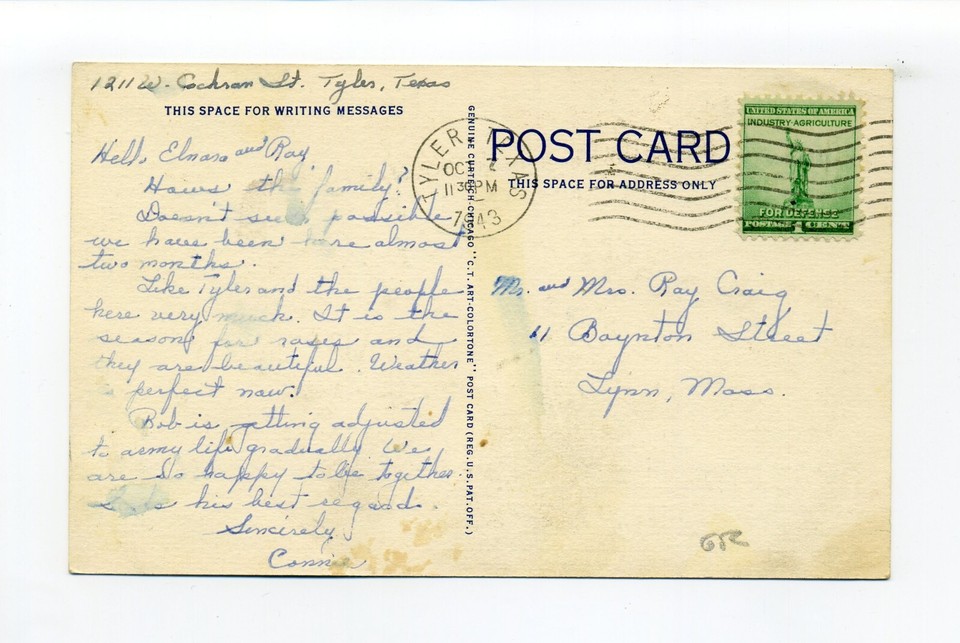 1211 W. Cochran St. Tyler, Texas
THIS SPACE FOR WRITING MESSAGES
Hello Elnora and Ray
Haws the family?
Doesn't seem possible
we have been here almost
two months.
Like Tyler and the people
here very much. It is the
season for roses and
they are beautiful. Weather
is perfect now.
Bob is getting adjusted
to army life gradually. We
are so happy to be together.
his best regard.
Sincerely
Connie
GENUINE CURTEICH-CHICAGO "C.T. ART-COLORTONE" POST CARD (REG. U.S. PAT. OFF.)
TYLER TEXAS
OCT 2
11 30 PM
1943
POST CARD
THIS SPACE FOR ADDRESS ONLY
UNITED STATES OF AMERICA
INDUSTRY·AGRICULTURE
FOR DEFENSE
POSTAGE 1 CENT
Mr. and Mrs. Ray Craig
11 Boynton Street
Lynn, Mass.